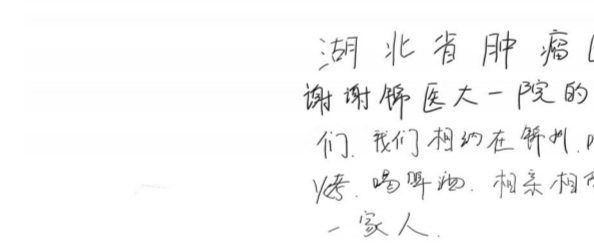 湖北省肿瘤
谢谢锦医大一院的
们.我们相约在锦州.
烤.喝啤酒.相亲相
一家人.